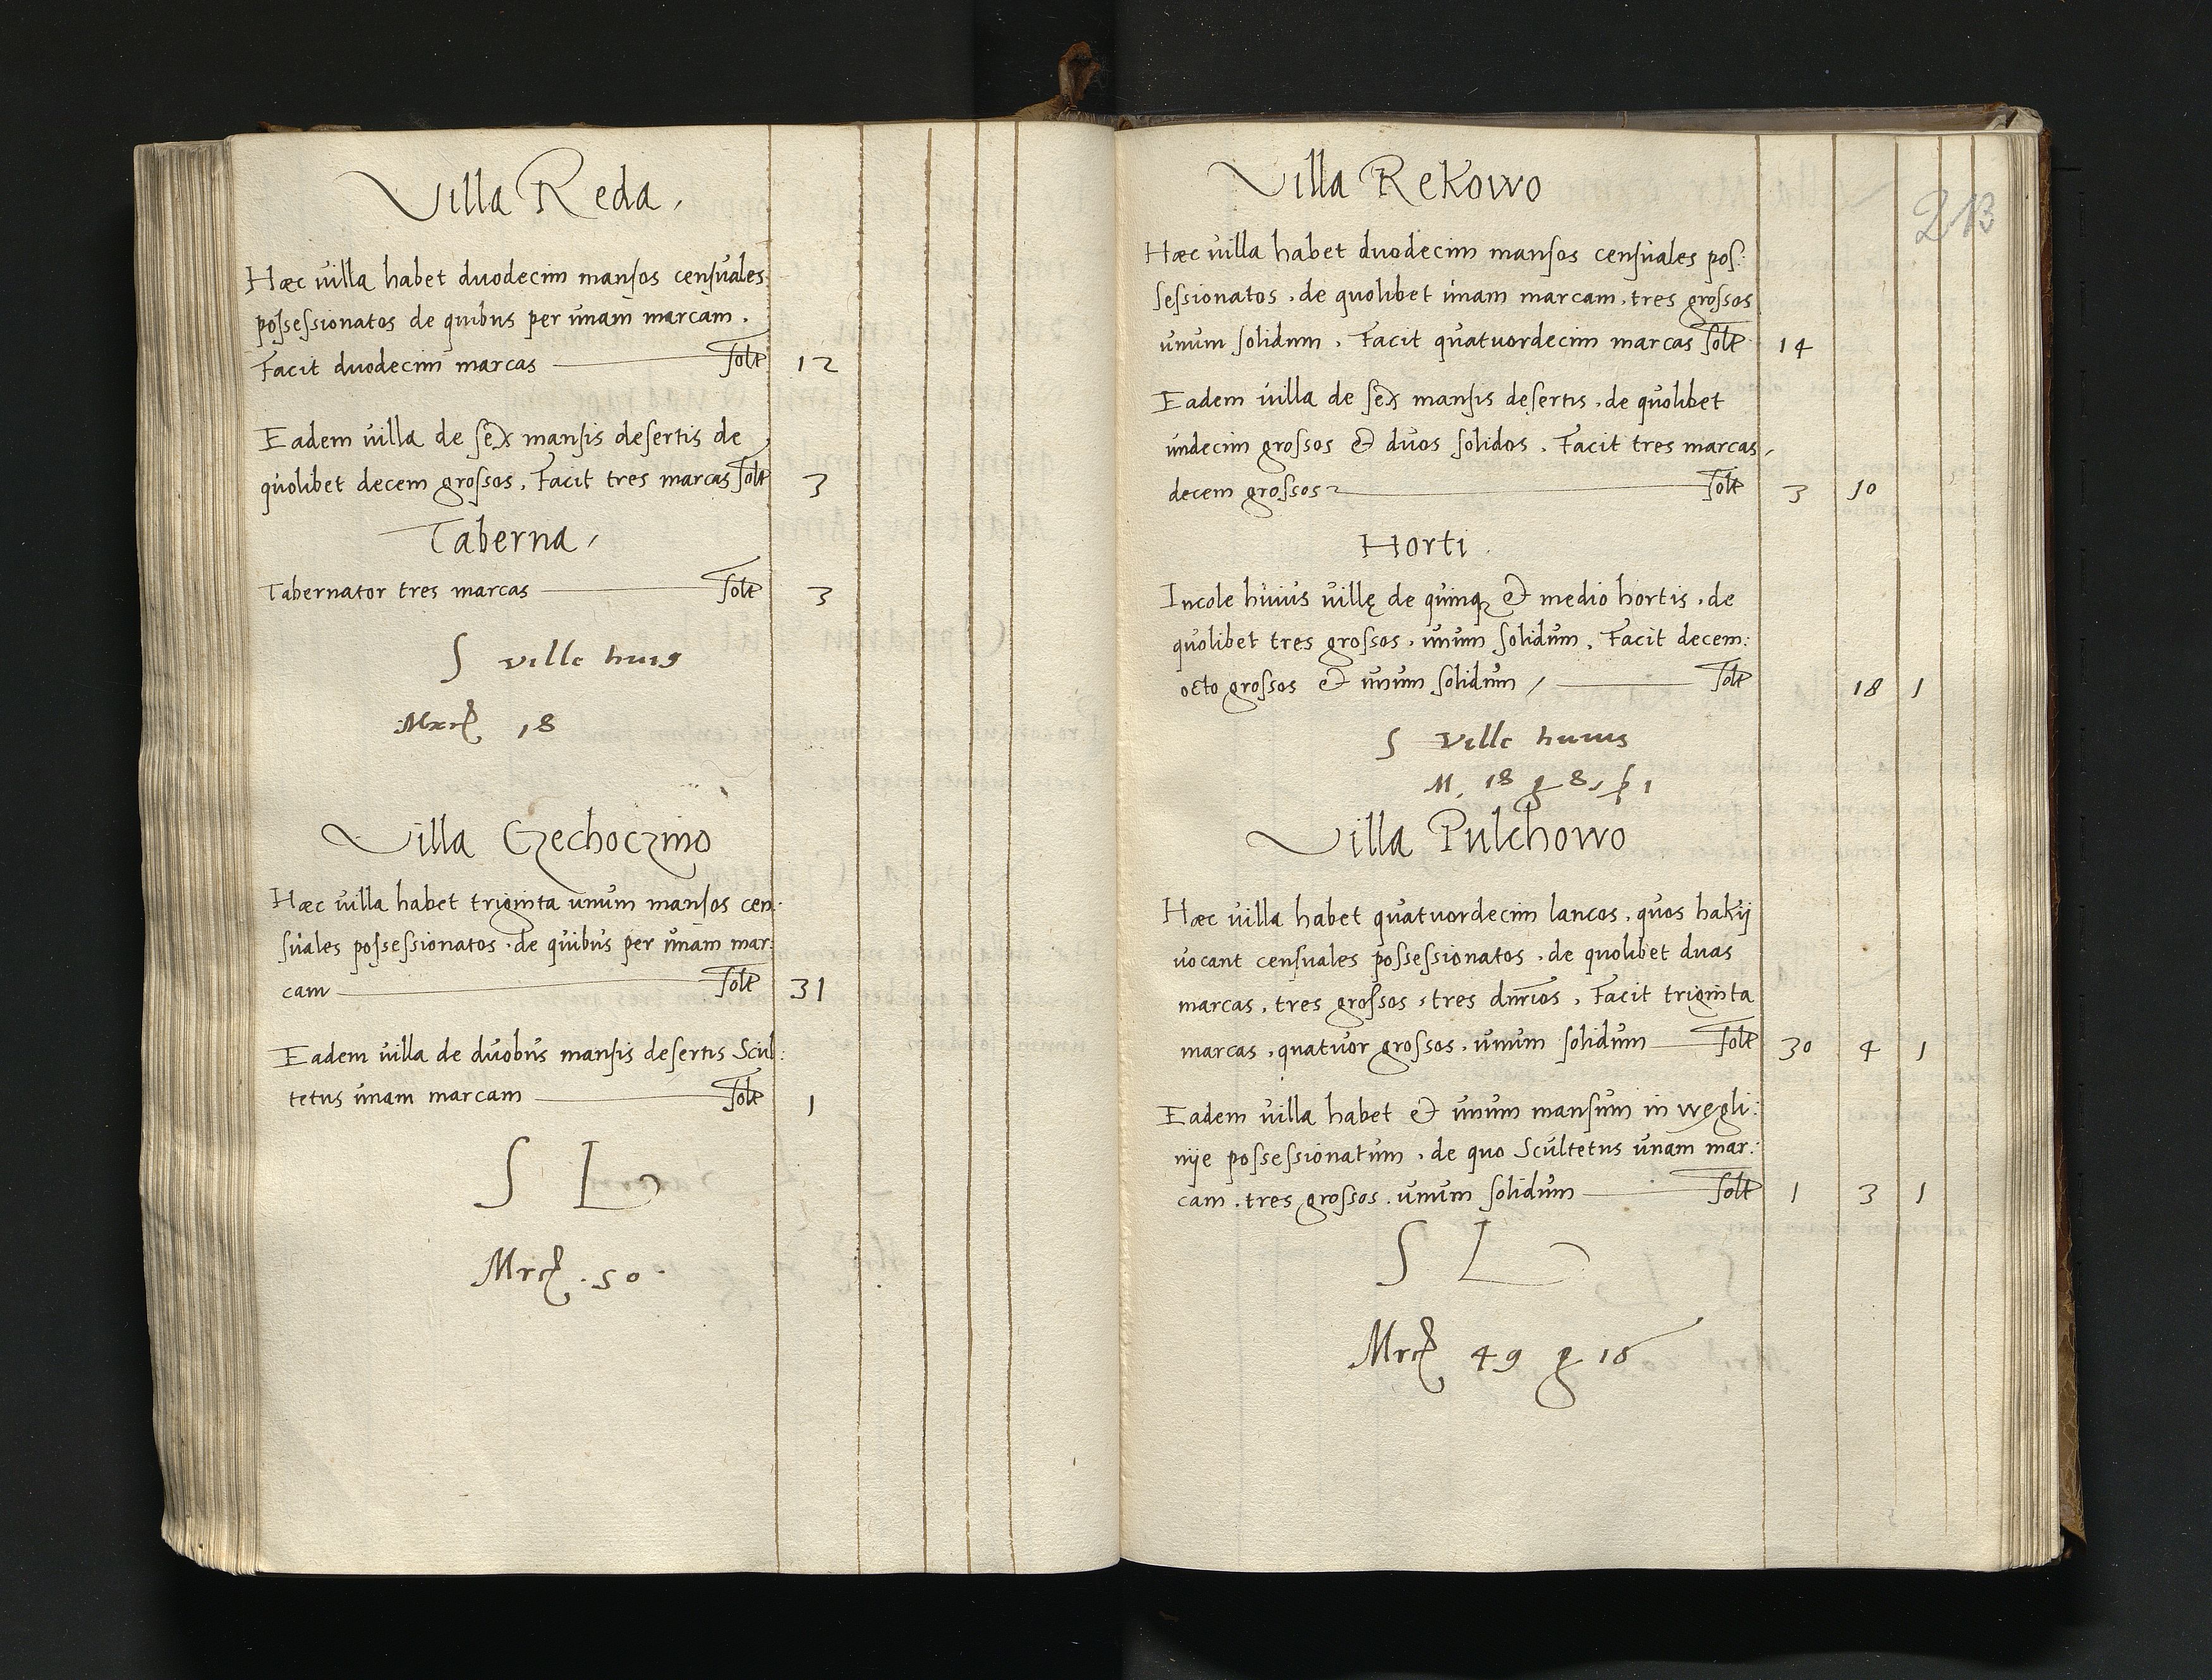 Villa Reda,
Hæc villa habet duodecim mansos censuales
possessionatos de quibus per unam marcam.
Facit duodecim marcas solt 12
Eadem villa de sex mansis desertis de
quolibet decem grossos. Facit tres marcas solt 3
Taberna,
Tabernator tres marcas solt 3
S ville huiꝰ
Mrc 18
Villa Czechoczino
Hæc villa habet triginta unum mansos cen:
suales possessionatos. de quibus per unam mar:
cam solt 31
Eadem villa de duobus mansis desertis Scul:
tetus unam marcam solt 1
S L
Mrc .50.
213
Villa Rekowo
Hæc villa habet duodecim mansos censuales pos:
sessionatos. de quolibet unam marcam. tres grossos
unum solidum. Facit quatuordecim marcas solt 14
Eadem villa de sex mansis desertis. de quolibet
undecim grossos & duos solidos. Facit tres marcas,
decem grossos solt 3 10
Horti.
Incole huius villę de quinqꝫ & medio hortis. de
quolibet tres grossos. unum solidum. Facit decem:
octo grossos & unum solidum / solt 18 1
S ville huius
M. 18 g 8, ß 1
Villa Pulchowo
Hæc villa habet quatuordecim lancos. quos hakij
vocant censuales possessionatos. de quolibet duas
marcas. tres grossos. tres dnrios. Facit triginta
marcas. quatuor grossos. unum solidum solt 30 4 1
Eadem villa habet & unum mansum in węgli:
nije possessionatum. de quo Scultetus unam mar:
cam. tres grossos. unum solidum solt 1 3 1
S L
Mrc 49 g 16